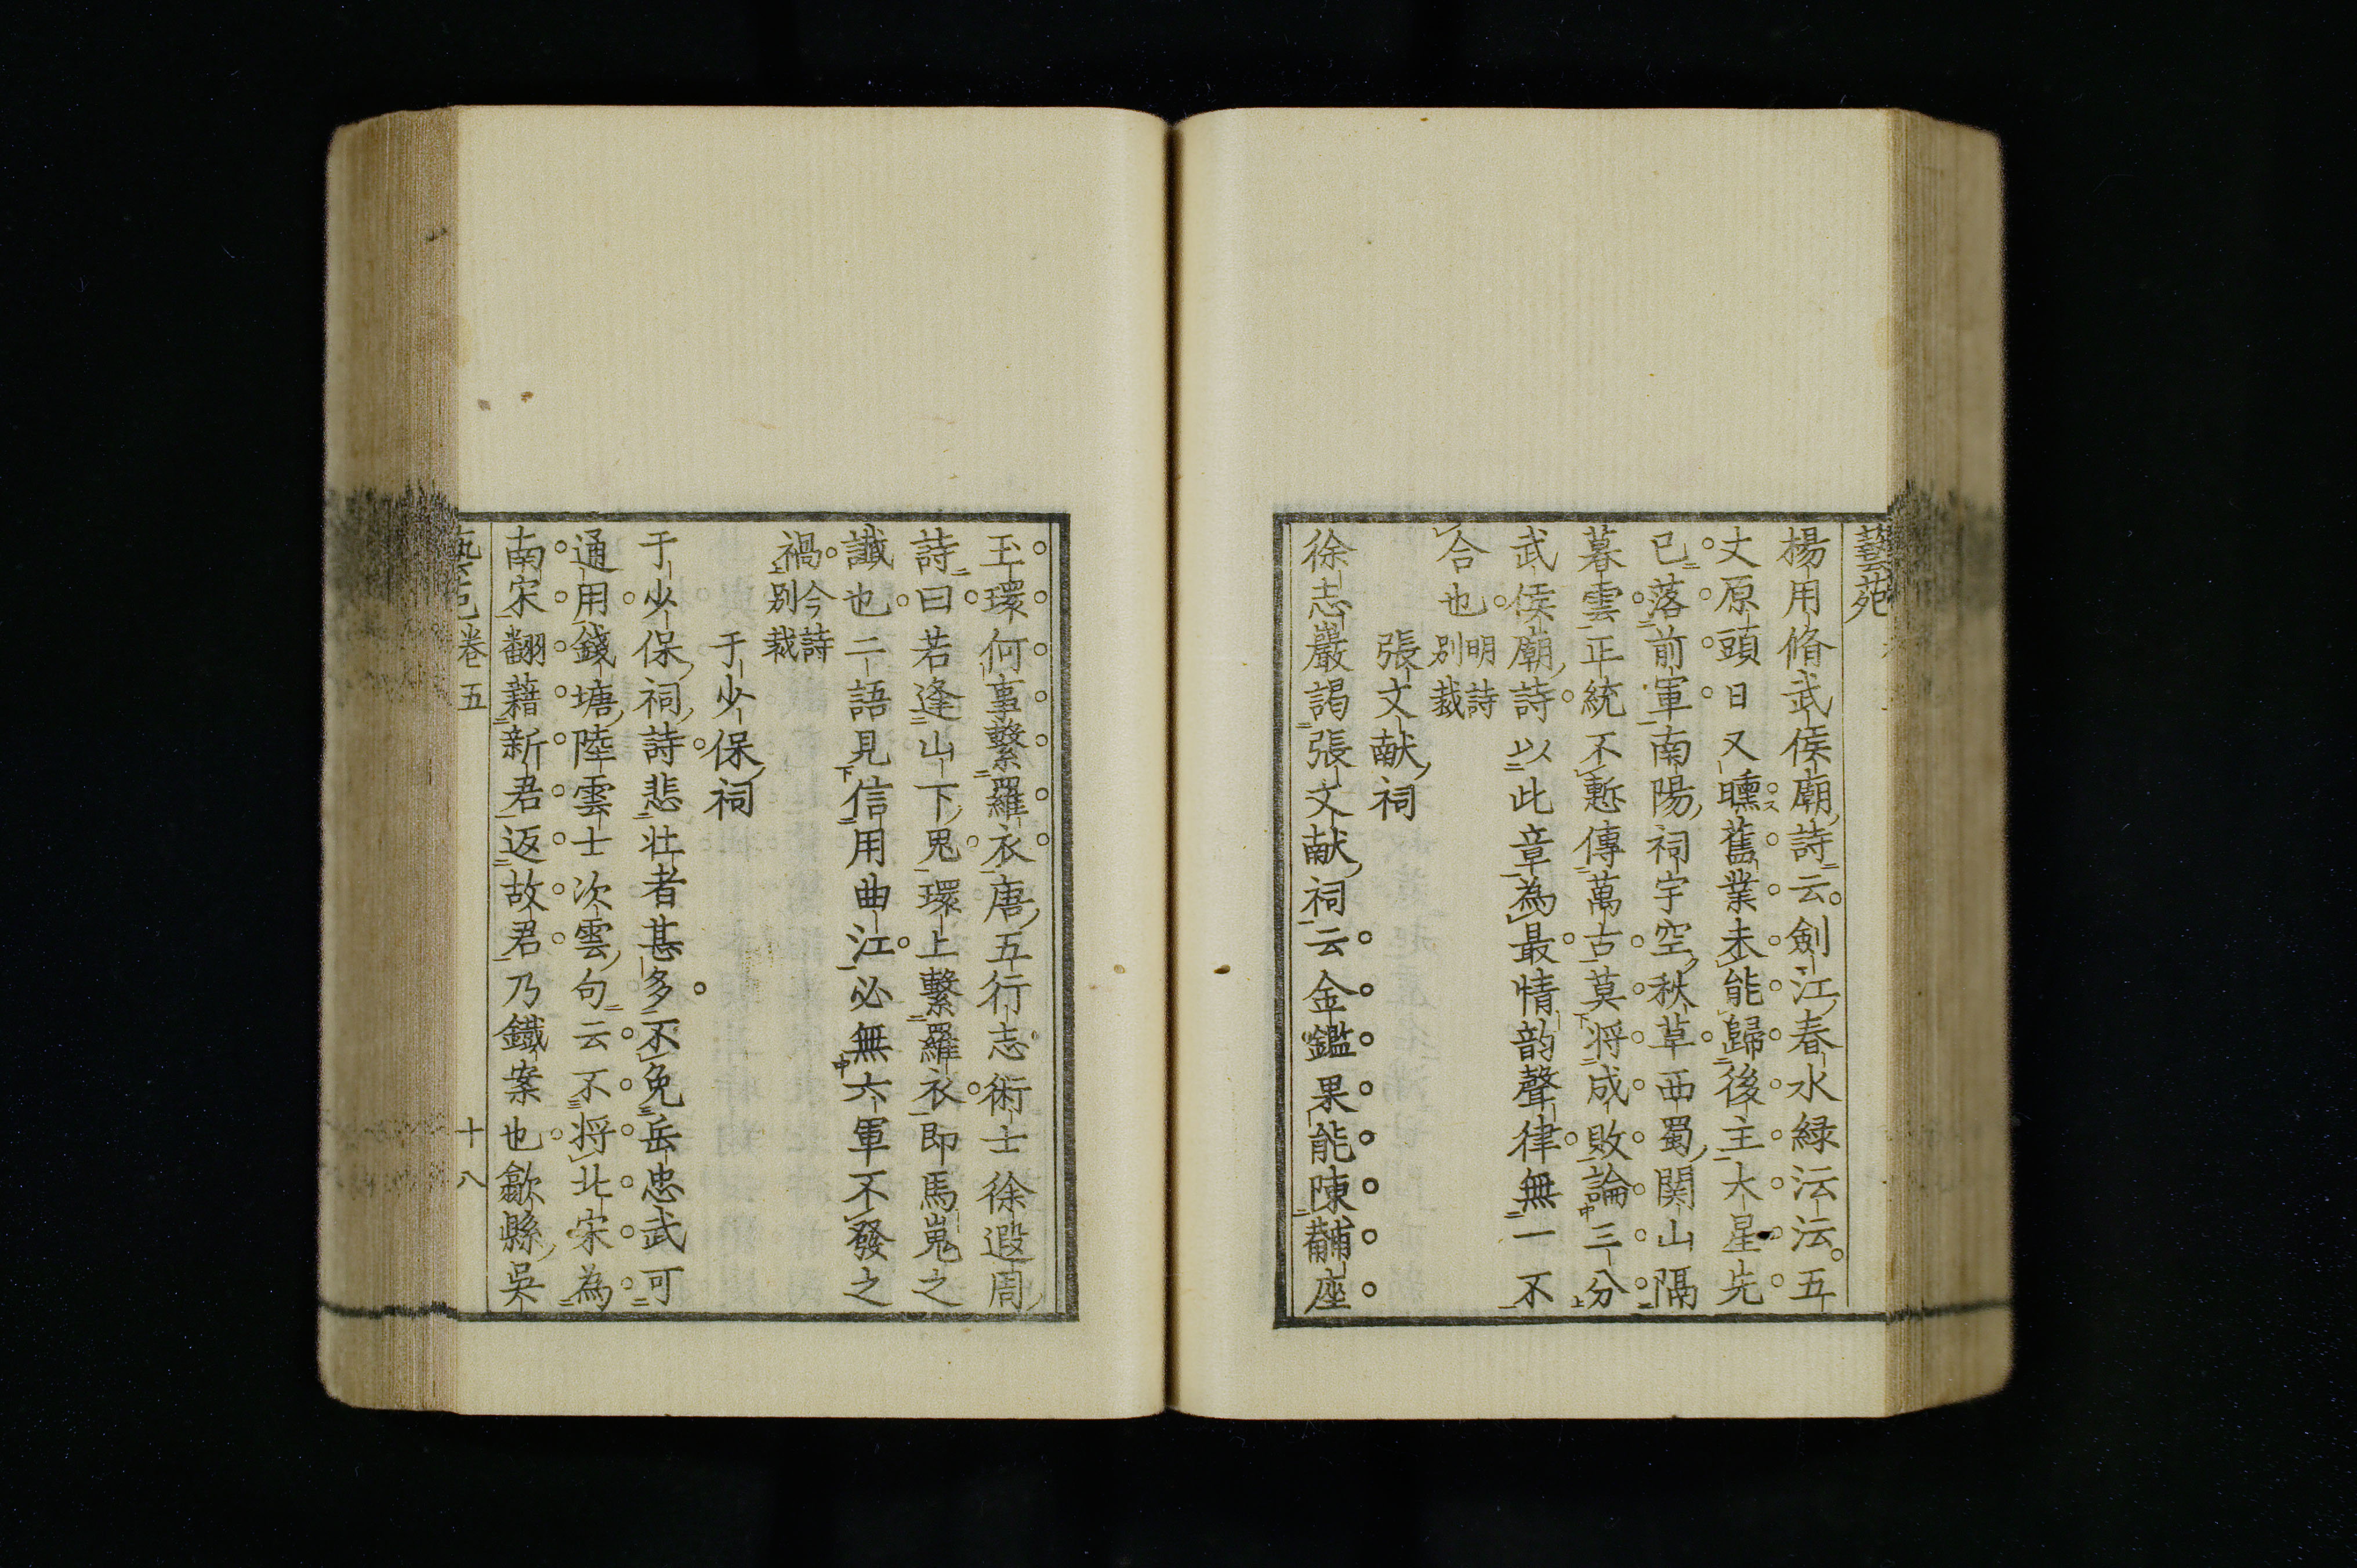 藝苑
楊用脩武侯廟詩云劍江春水緑沄沄五
丈原頭日又曛舊業未能歸後主大星先
已落前軍南陽祠宇空秋草西蜀関山隔
暮雲正統不慙傳萬古莫将成敗論三分
武侯廟詩以此章為最情韵聲律無一不
合也明詩别裁
張文献祠
徐志巖謁張文献祠云金鑑果能陳黼座
玉環何事繫羅衣唐五行志術士徐遐周
詩曰若逢山下鬼環上繫羅衣即馬嵬之
讖也二語見信用曲江必無六軍不發之
禍今詩别裁
于少保祠
于少保祠詩悲壮者甚多不免岳忠武可
通用錢塘陸雲士次雲句云不将北宋為
南宋翻藉新君返故君乃鐵案也歙縣吳
卷五 十八